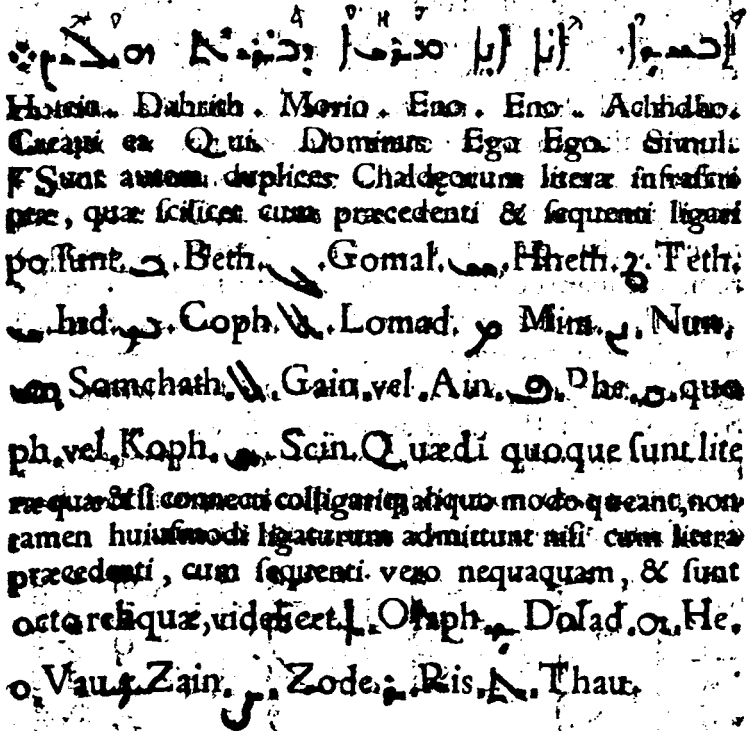 Dahrith. Morio. Eno. Eno. Achidho.
Creaui ea Qui. Dominus Ego Ego. Simul.
Sunt autem duplices Chaldęorum literæ infrascri
ptæ, quæ scilicet cum præcedenti & sequenti ligari
possunt. ܒ. Beth. ܓ. Gomal. ܚ. Hheth. ܛ. Teth.
ܝ. Iud. ܟ. Coph. ܠ. Lomad. ܡ Mim. ܢ. Nun.
ܣ Somchath. ܥ. Gain. vel. Ain. ܦ. Phe. ܩ. quo
ph. vel. Koph. ܫ. Scin. Quædã quoque sunt lite
ræ quæ & si connecti colligariq; aliquo modo queant, non
tamen huiusmodi ligaturam admittunt nisi cum litera
præcedenti, cum sequenti vero nequaquam, & sunt
octo reliquæ, videlicet. ܐ. Olaph. ܕ. Dolad. ܗ. He.
ܘ. Vau. ܙ. Zain. ܨ. Zode. ܪ. Ris. ܬ. Thau.